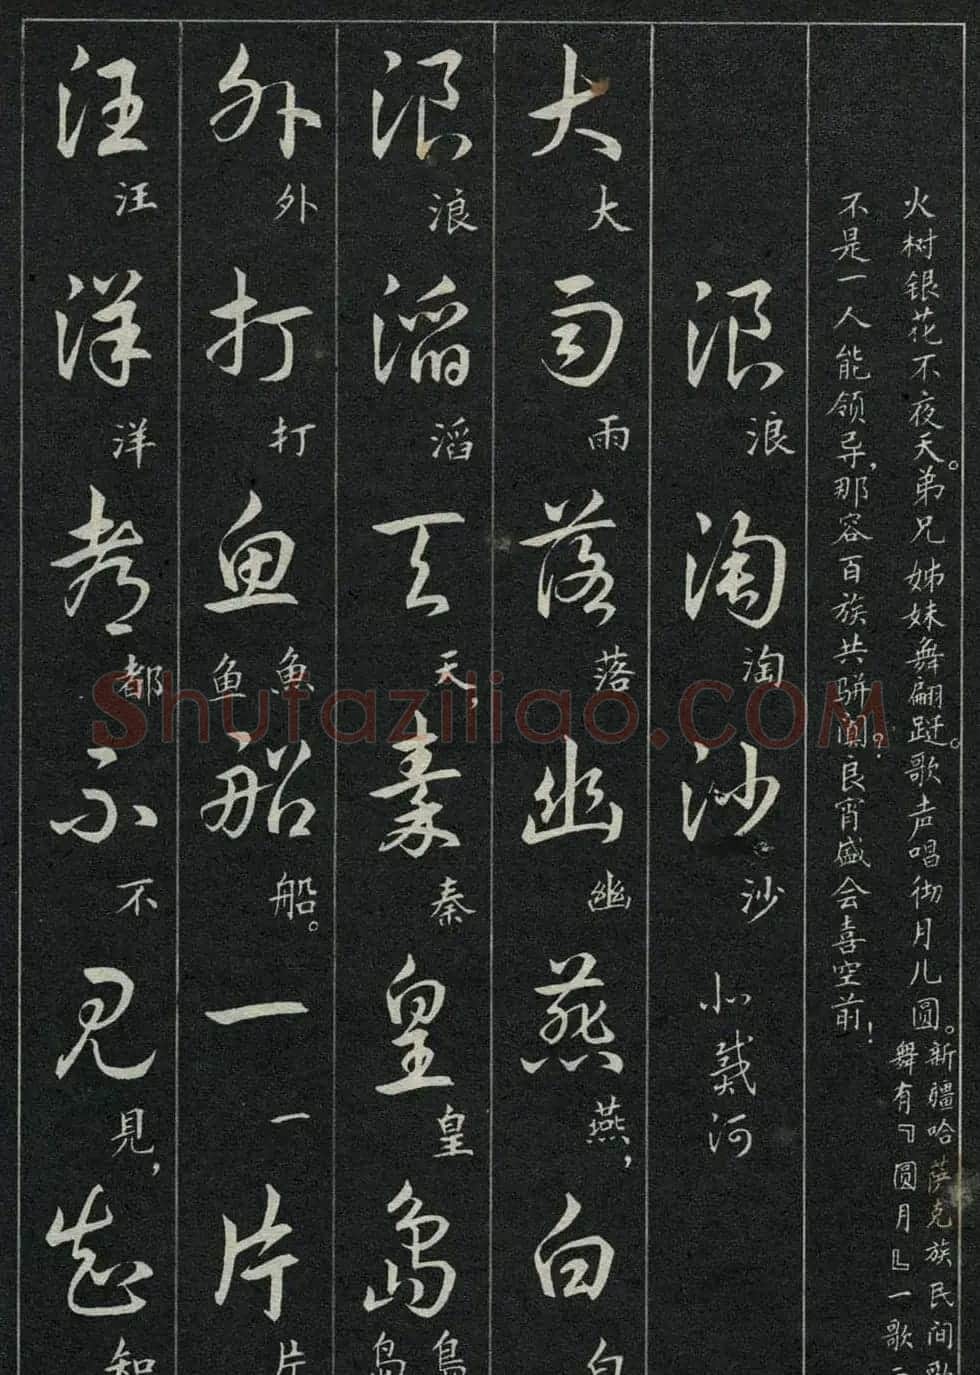 火树银花不夜天。弟兄姊妹舞翩跹。歌声唱彻月儿圆。
新疆哈萨克族民间歌
舞有『圆月』一歌
不是一人能领导,那容百族共骈阗?良宵盛会喜空前!
浪淘沙
浪淘沙
北戴河
大雨落幽燕白
大雨落幽燕,白
浪滔天秦皇岛
浪滔天,秦皇島岛
外打鱼船一片
外打魚鱼船。一片
汪洋都不见知
汪洋都不見,知
Shufaziliao.COM